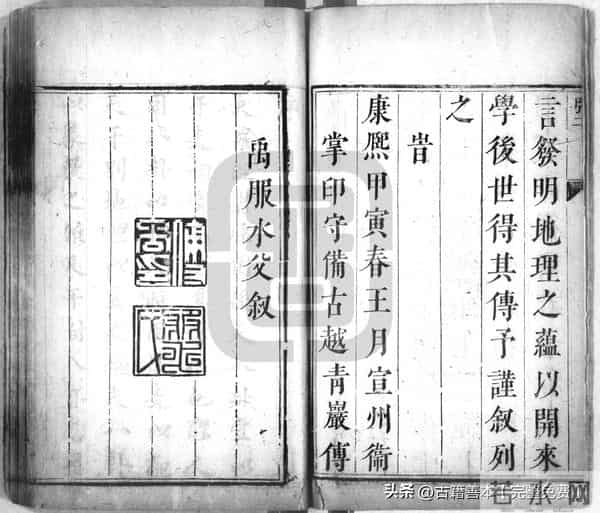 言發明地理之蘊以開來
學後世得其傳予謹叙列
之
旹
康熙甲寅春王月宣州衞
掌印守備古越青巖傅
禹服水父叙
头条 @古籍善本
完整免费